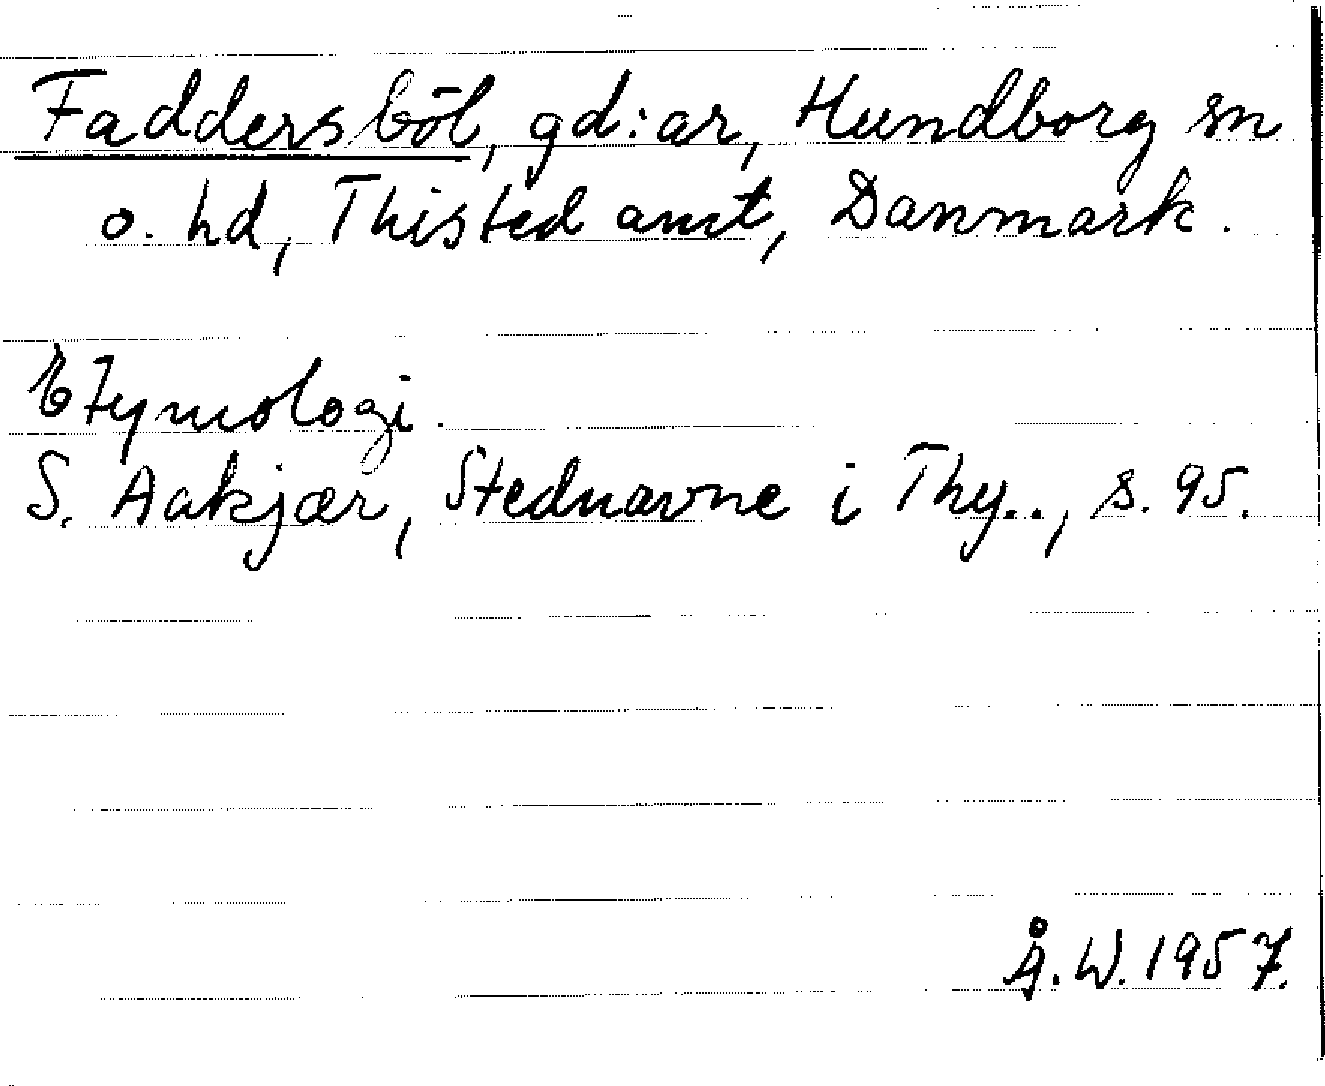 Faddersböl, gd:ar, Hundborg sn
o. hd, Thisted amt, Danmark.
Etymologi.
S. Aakjær, Stednavne i Thy.., s. 95.
Å.W. 1957.